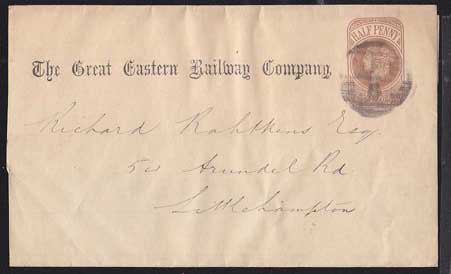 HALF PENNY
The Great Eastern Railway Company,
Richard Rahtkens Esq.
54 Arundel Rd.
Littlehampton